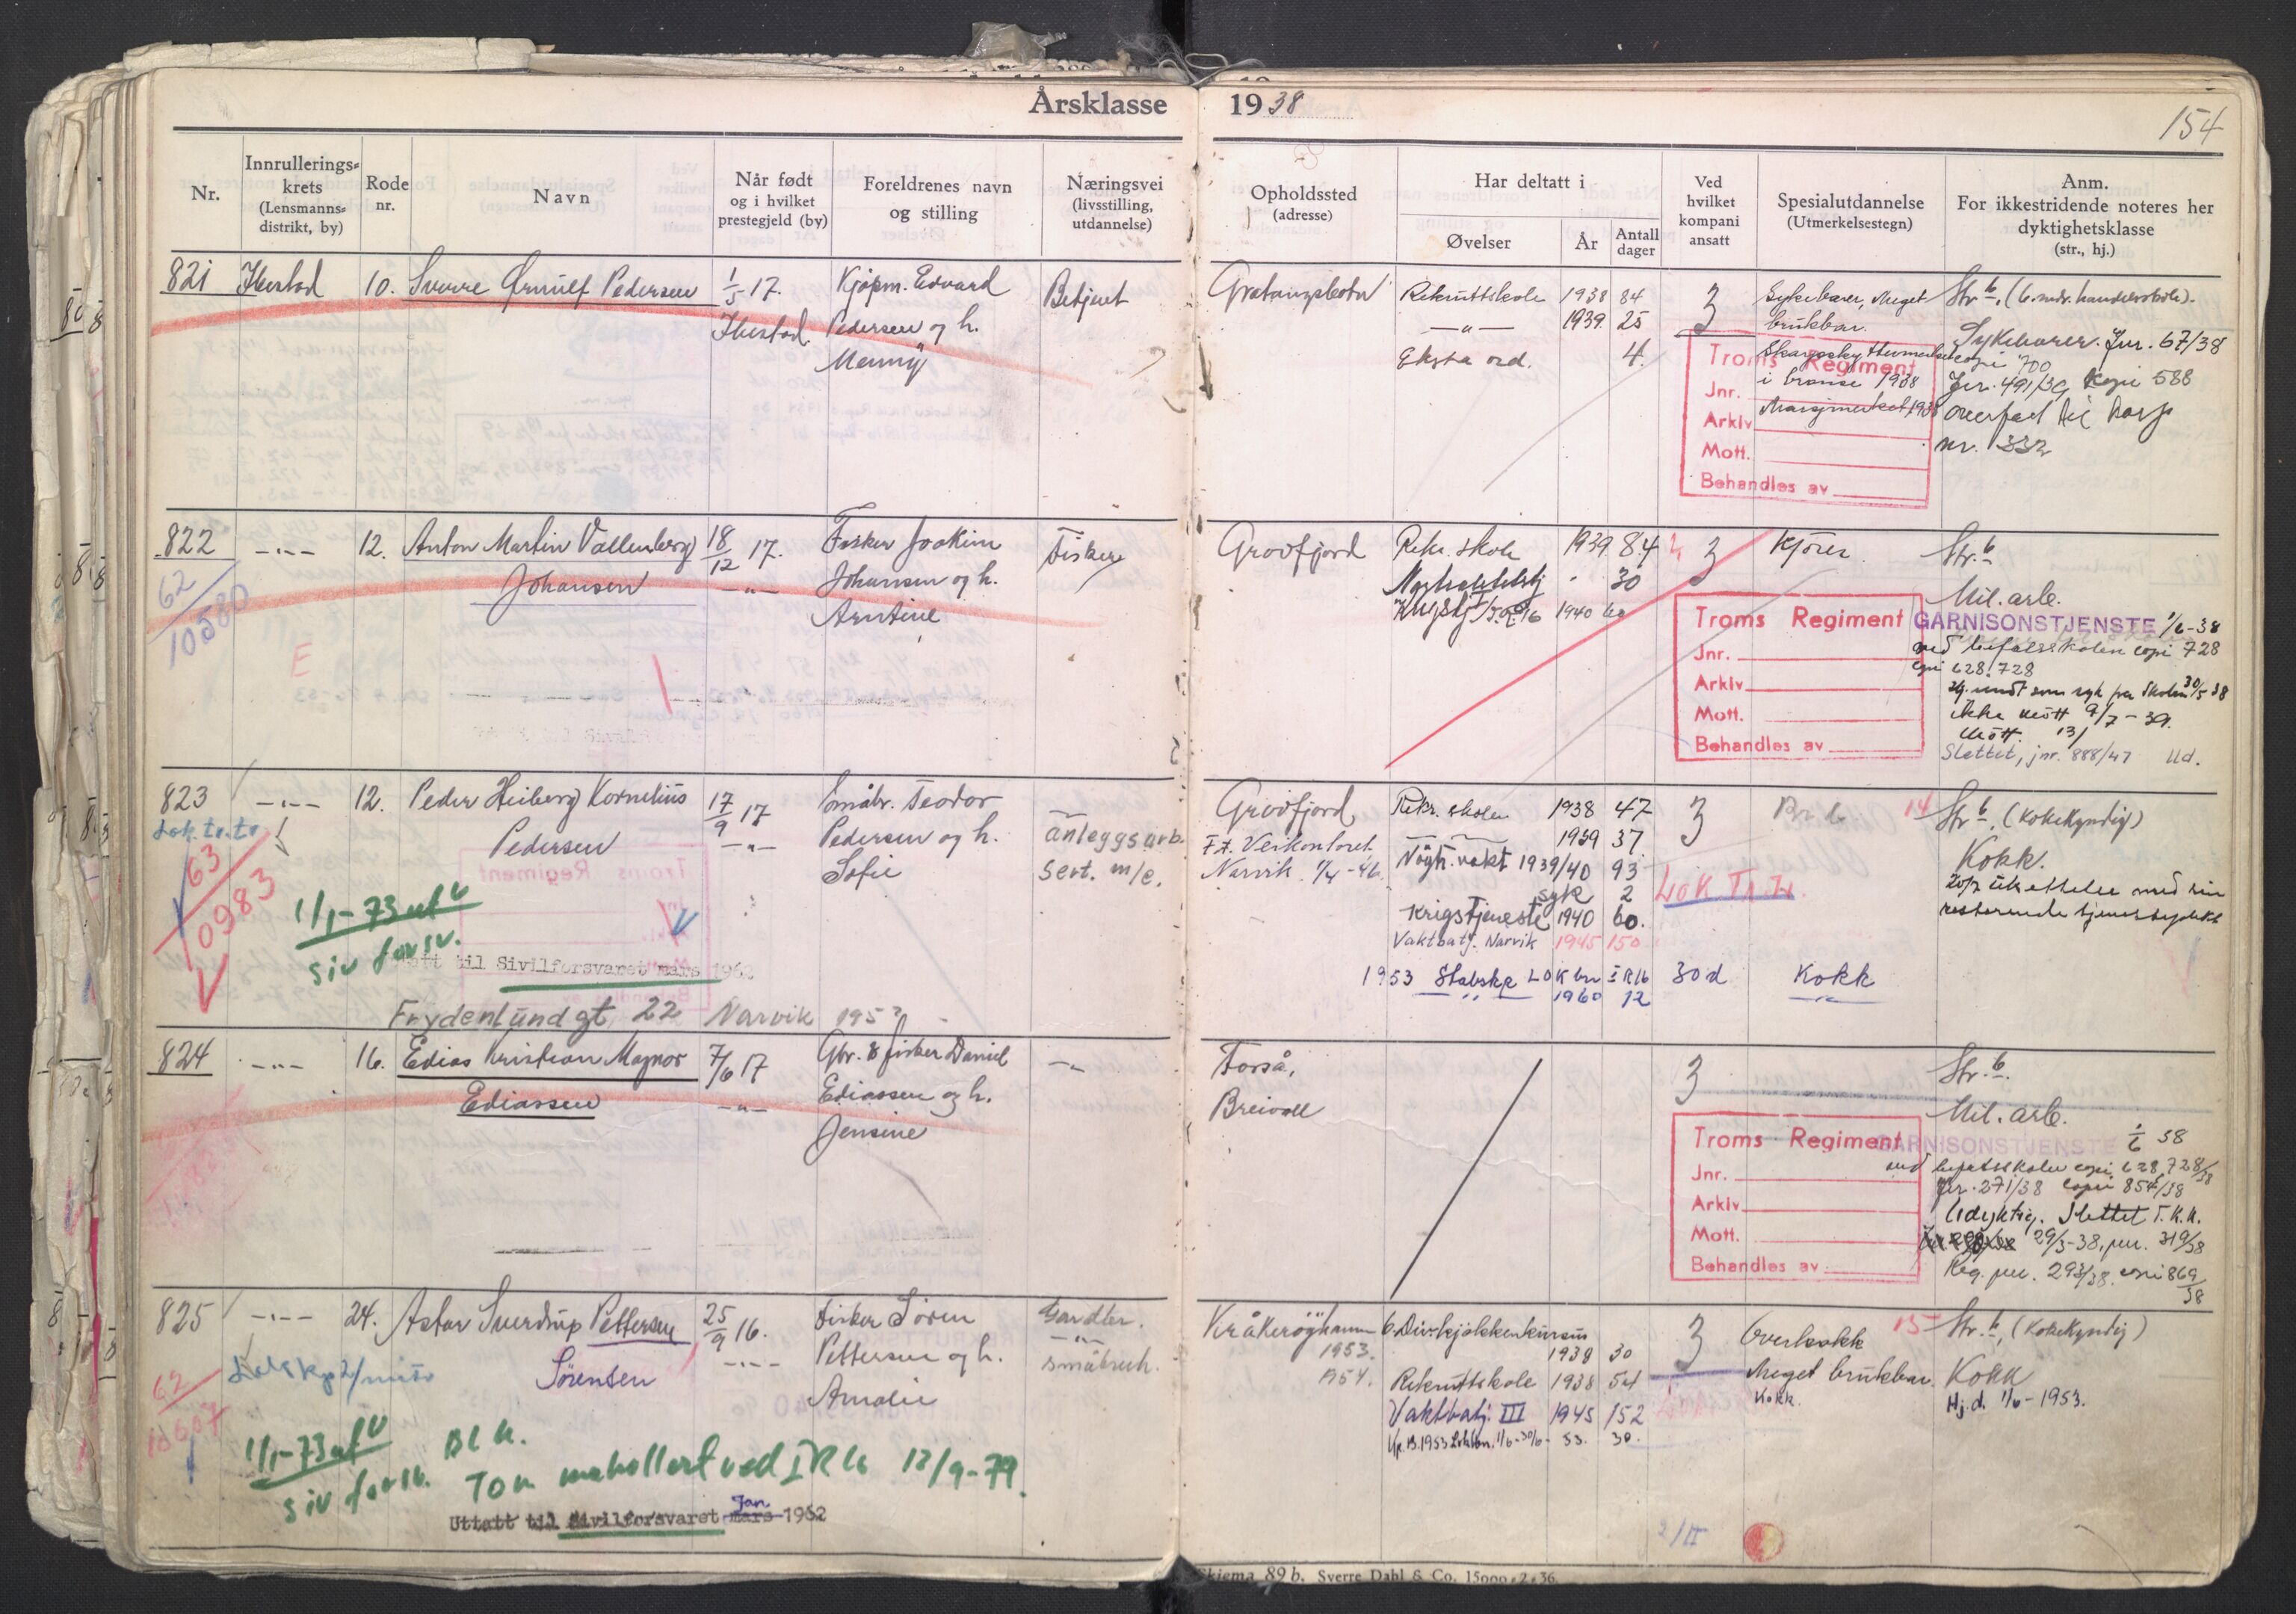 Årsklasse 1938
154
Nr.
Innrullerings=
krets
(Lensmanns=
distrikt, by)
Rode
nr.
Navn
Når født
og i hvilket
prestegjeld (by)
Foreldrenes navn
og stilling
Næringsvei
(livsstilling,
utdannelse)
Opholdssted
(adresse)
Har deltatt i
Øvelser
År
Antall
dager
Ved
hvilket
kompani
ansatt
Spesialutdannelse
(Utmerkelsestegn)
Anm.
For ikkestridende noteres her
dyktighetsklasse
(str., hj.)
821 Ibestad 10. Sverre Ørnulf Pedersen 1/5 17.
Ibestad
Kjøpm. Edvard
Pedersen og h.
Menny
Betjent
Gratangsbotn
Rekruttskole 1938 84
—"— 1939 25
Ekstra ord. 4.
3
Sykebærer, Meget
brukbar.
i bronse 1938
Marsjmerket 1938
Str. b. (6 mdr. handelsskole).
Sykebærer. Jnr. 67/38
copi 700
Jnr. 491/39 Kopi 588
overført til
nr. 332
Troms Regiment
Jnr.
Arkiv
Mott.
Behandles av
822 —"— 12. Anton Martin Vallenberg
Johansen
18/12 17.
—"—
Fisker Joakim
Johansen og h.
Arntine
Fisker
62
10580
E
Grovfjord
Rekr. skole 1939 84
30
1940 60
3
Kjører
Str. b
Mil. arb.
GARNISONSTJENSTE 1/6-38
ved befalsskolen copi 728
copi 628. 728
ikke møtt 9/7-39.
Møtt. 13/
Slettet, jnr. 888/47 Ud.
Troms Regiment
Jnr.
Arkiv
Mott.
Behandles av
823 —"— 12. Peder Heiberg Kornelius
Pedersen
17/9 17
—"—
Småbr. Teodor
Pedersen og h.
Sofie
anleggsarb.
sert. m/c.
Lok. tr. tr
63
0983
1/1-73 utg
siv forsv.
til Sivilforsvaret mars 1962
Frydenlundgt 22 Narvik 195
Grovfjord
F.t. Veikontoret
Narvik 1/4-46.
Rekr. skolen 1938 47
1939 37
Nøytr. vakt 1939/40 93
syk 2
Krigstjeneste 1940 60.
Vaktbatj. Narvik 1945 150
1953 Stabskp LOK bn IR16 30 d Kokk
—"— 1960 12 —"—
3
Lok Tr. Tr.
14
Str. b. (Kokekyndig)
Kokk.
resterende
824 —"— 16. Edias Kristian Magnor
Ediassen
7/6 17
—"—
Gbr. & fisker Daniel
Ediassen og h.
Jensine
—"—
Forså,
Breivoll
3
Str. b.
Mil. arb.
GARNISONSTJENSTE 1/6 38
ved befalsskolen copi 628, 728/38
Jnr. 271/38 copi 854/38
Udyktig. Slettet T.K.K.
29/3-38, jnr. 319/38
Reg. jnr. 293/38. copi 869/38
Troms Regiment
Jnr.
Arkiv
Mott.
Behandles av
825 —"— 24. Astor Sverdrup Pettersen
Sørensen
25/9 16.
—"—
Fisker Søren
Pettersen og h.
Amalie
Handler.
—"—
småbruk.
62
10607
1/1-73 utg
siv forsv.
Bl k.
Tom ved IR16 12/9-79.
Uttatt til Sivilforsvaret mars Jan. 1962
Kråkerøyhamn
1953.
A54.
6. Div. kjøkkenkursus
1938 30
Rekruttskole 1938 54
Vaktbatj. III 1945 152
1953 1/6-30/6- 53. 30.
3
Overkokk
Meget brukbar.
Kokk.
15
Str. b. (Kokekyndig)
Kokk
Hj.d. 1/6-1953.
2/II
Skjema 89 b. Sverre Dahl & Co. 15000 • 2 • 36.